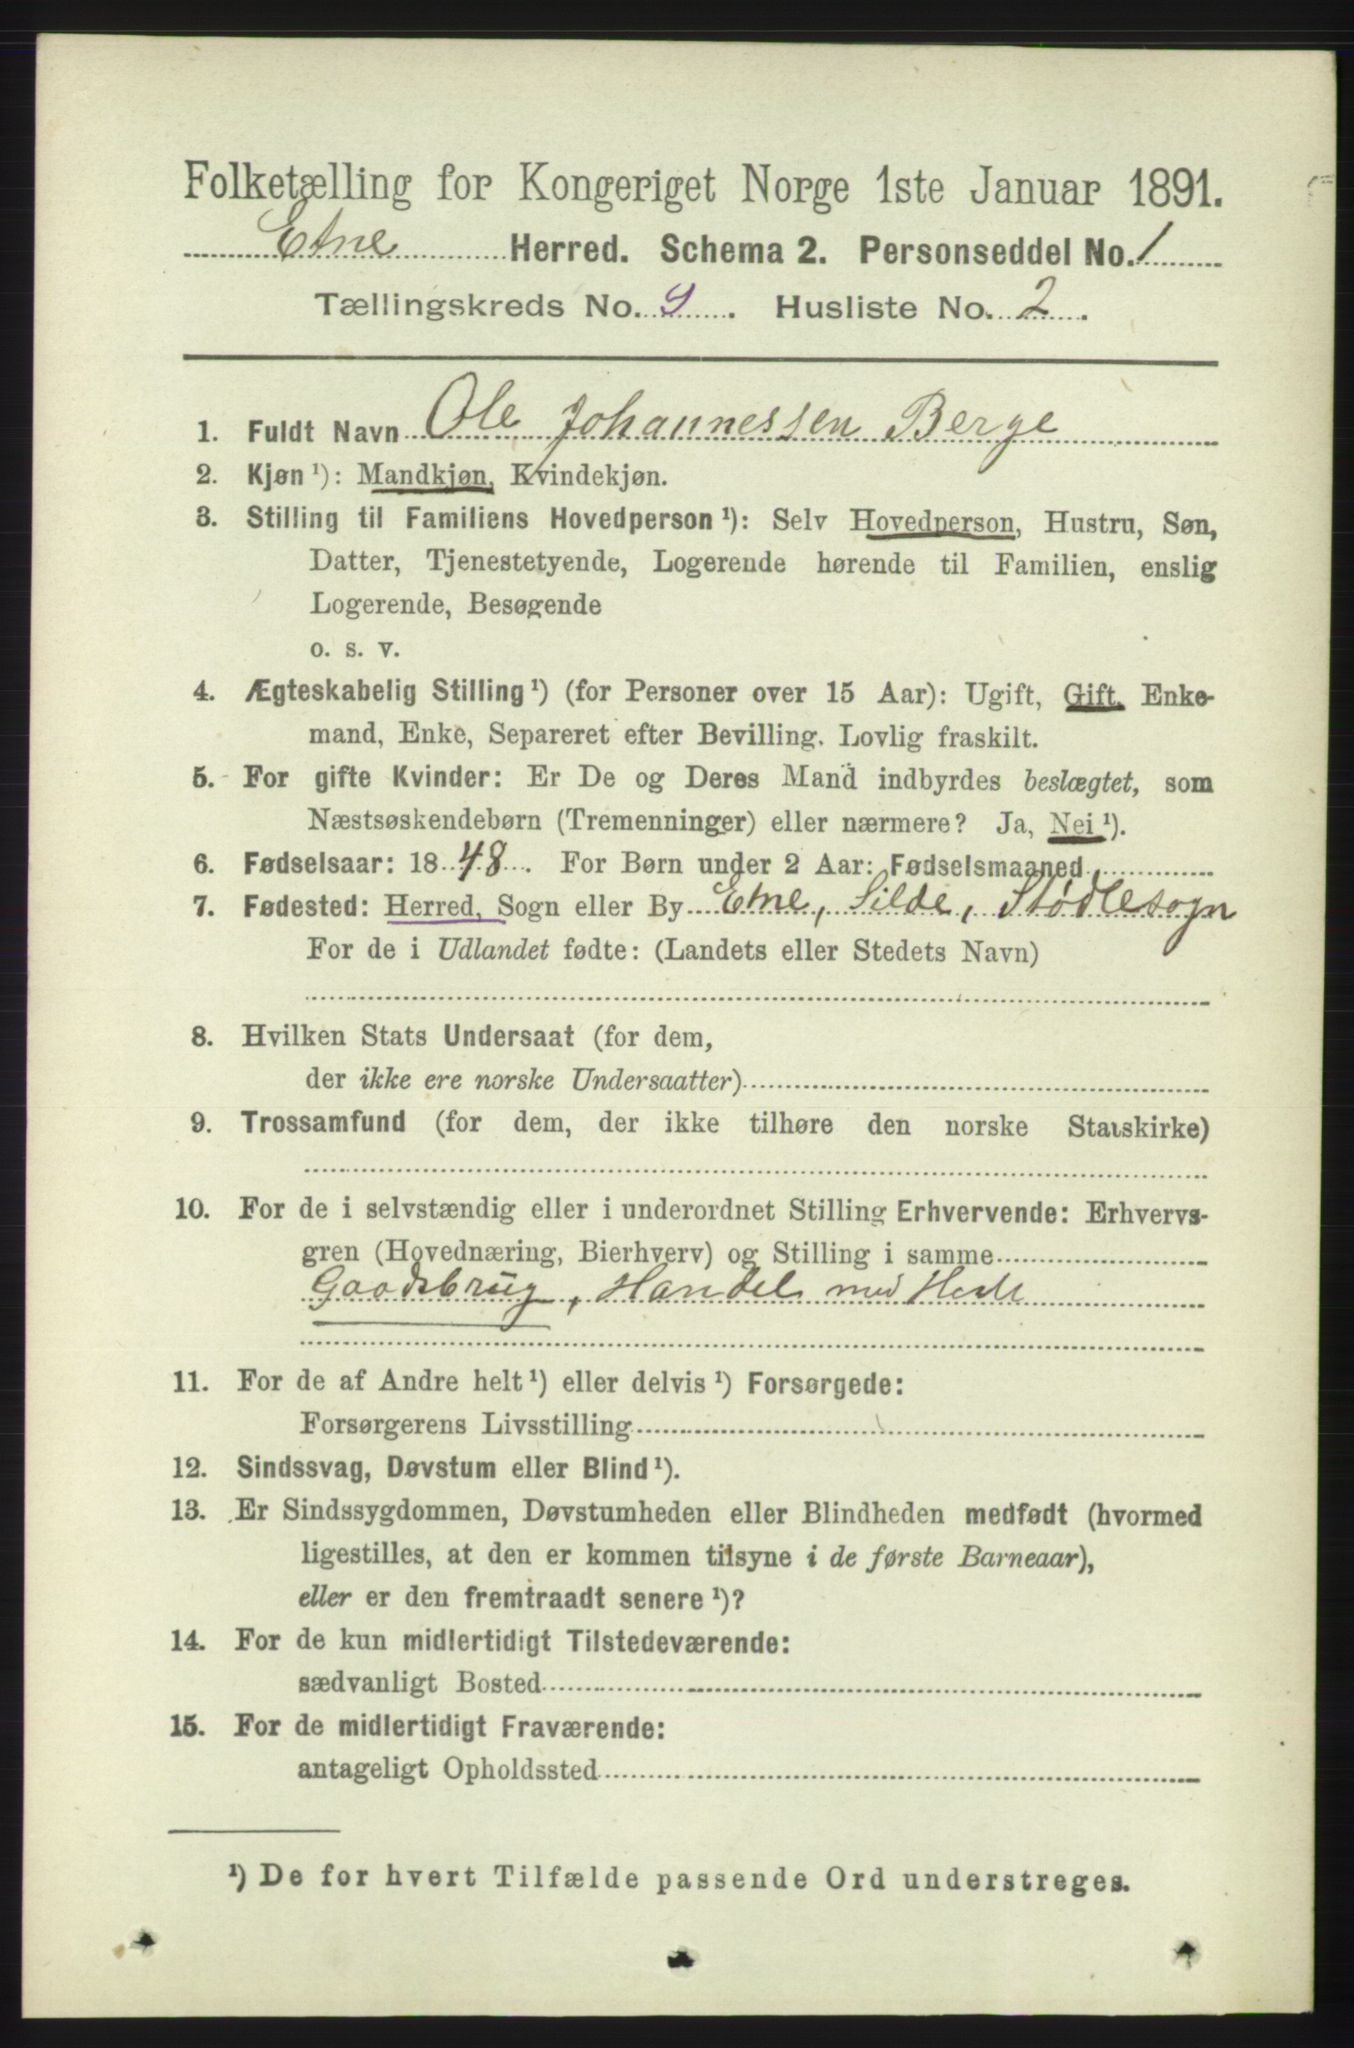 Folketælling for Kongeriget Norge 1ste Januar 1891.
Etne Herred. Schema 2. Personseddel No. 1
Tællingskreds No. 9. Husliste No. 2.
1. Fuldt Navn Ole Johannessen Berge
2. Kjøn ¹): Mandkjøn, Kvindekjøn.
3. Stilling til Familiens Hovedperson ¹): Selv Hovedperson, Hustru, Søn,
Datter, Tjenestetyende, Logerende hørende til Familien, enslig
Logerende, Besøgende
o. s. v.
4. Ægteskabelig Stilling ¹) (for Personer over 15 Aar): Ugift, Gift, Enke-
mand, Enke, Separeret efter Bevilling. Lovlig fraskilt.
5. For gifte Kvinder: Er De og Deres Mand indbyrdes beslægtet, som
Næstsøskendebørn (Tremenninger) eller nærmere? Ja, Nei ¹).
6. Fødselsaar: 1848. For Børn under 2 Aar: Fødselsmaaned
7. Fødested: Herred, Sogn eller By Etne, Silde, Stødlesogn
For de i Udlandet fødte: (Landets eller Stedets Navn)
8. Hvilken Stats Undersaat (for dem,
der ikke ere norske Undersaatter)
9. Trossamfund (for dem, der ikke tilhøre den norske Statskirke)
10. For de i selvstændig eller i underordnet Stilling Erhvervende: Erhvervs-
gren (Hovednæring, Bierhverv) og Stilling i samme
Gaardsbrug, Handel med Heste
11. For de af Andre helt ¹) eller delvis ¹) Forsørgede:
Forsørgerens Livsstilling
12. Sindssvag, Døvstum eller Blind ¹).
13. Er Sindssygdommen, Døvstumheden eller Blindheden medfødt (hvormed
ligestilles, at den er kommen tilsyne i de første Barneaar),
eller er den fremtraadt senere ¹)?
14. For de kun midlertidigt Tilstedeværende:
sædvanligt Bosted
15. For de midlertidigt Fraværende:
antageligt Opholdssted
¹) De for hvert Tilfælde passende Ord understreges.